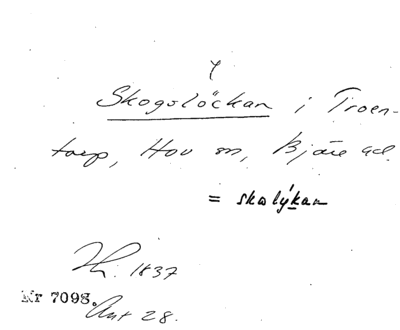 Skogslöckan i Troen-
torp, Hov sn, Bjäre hd.
= skolýkan
1837
Nr 7098.
28.